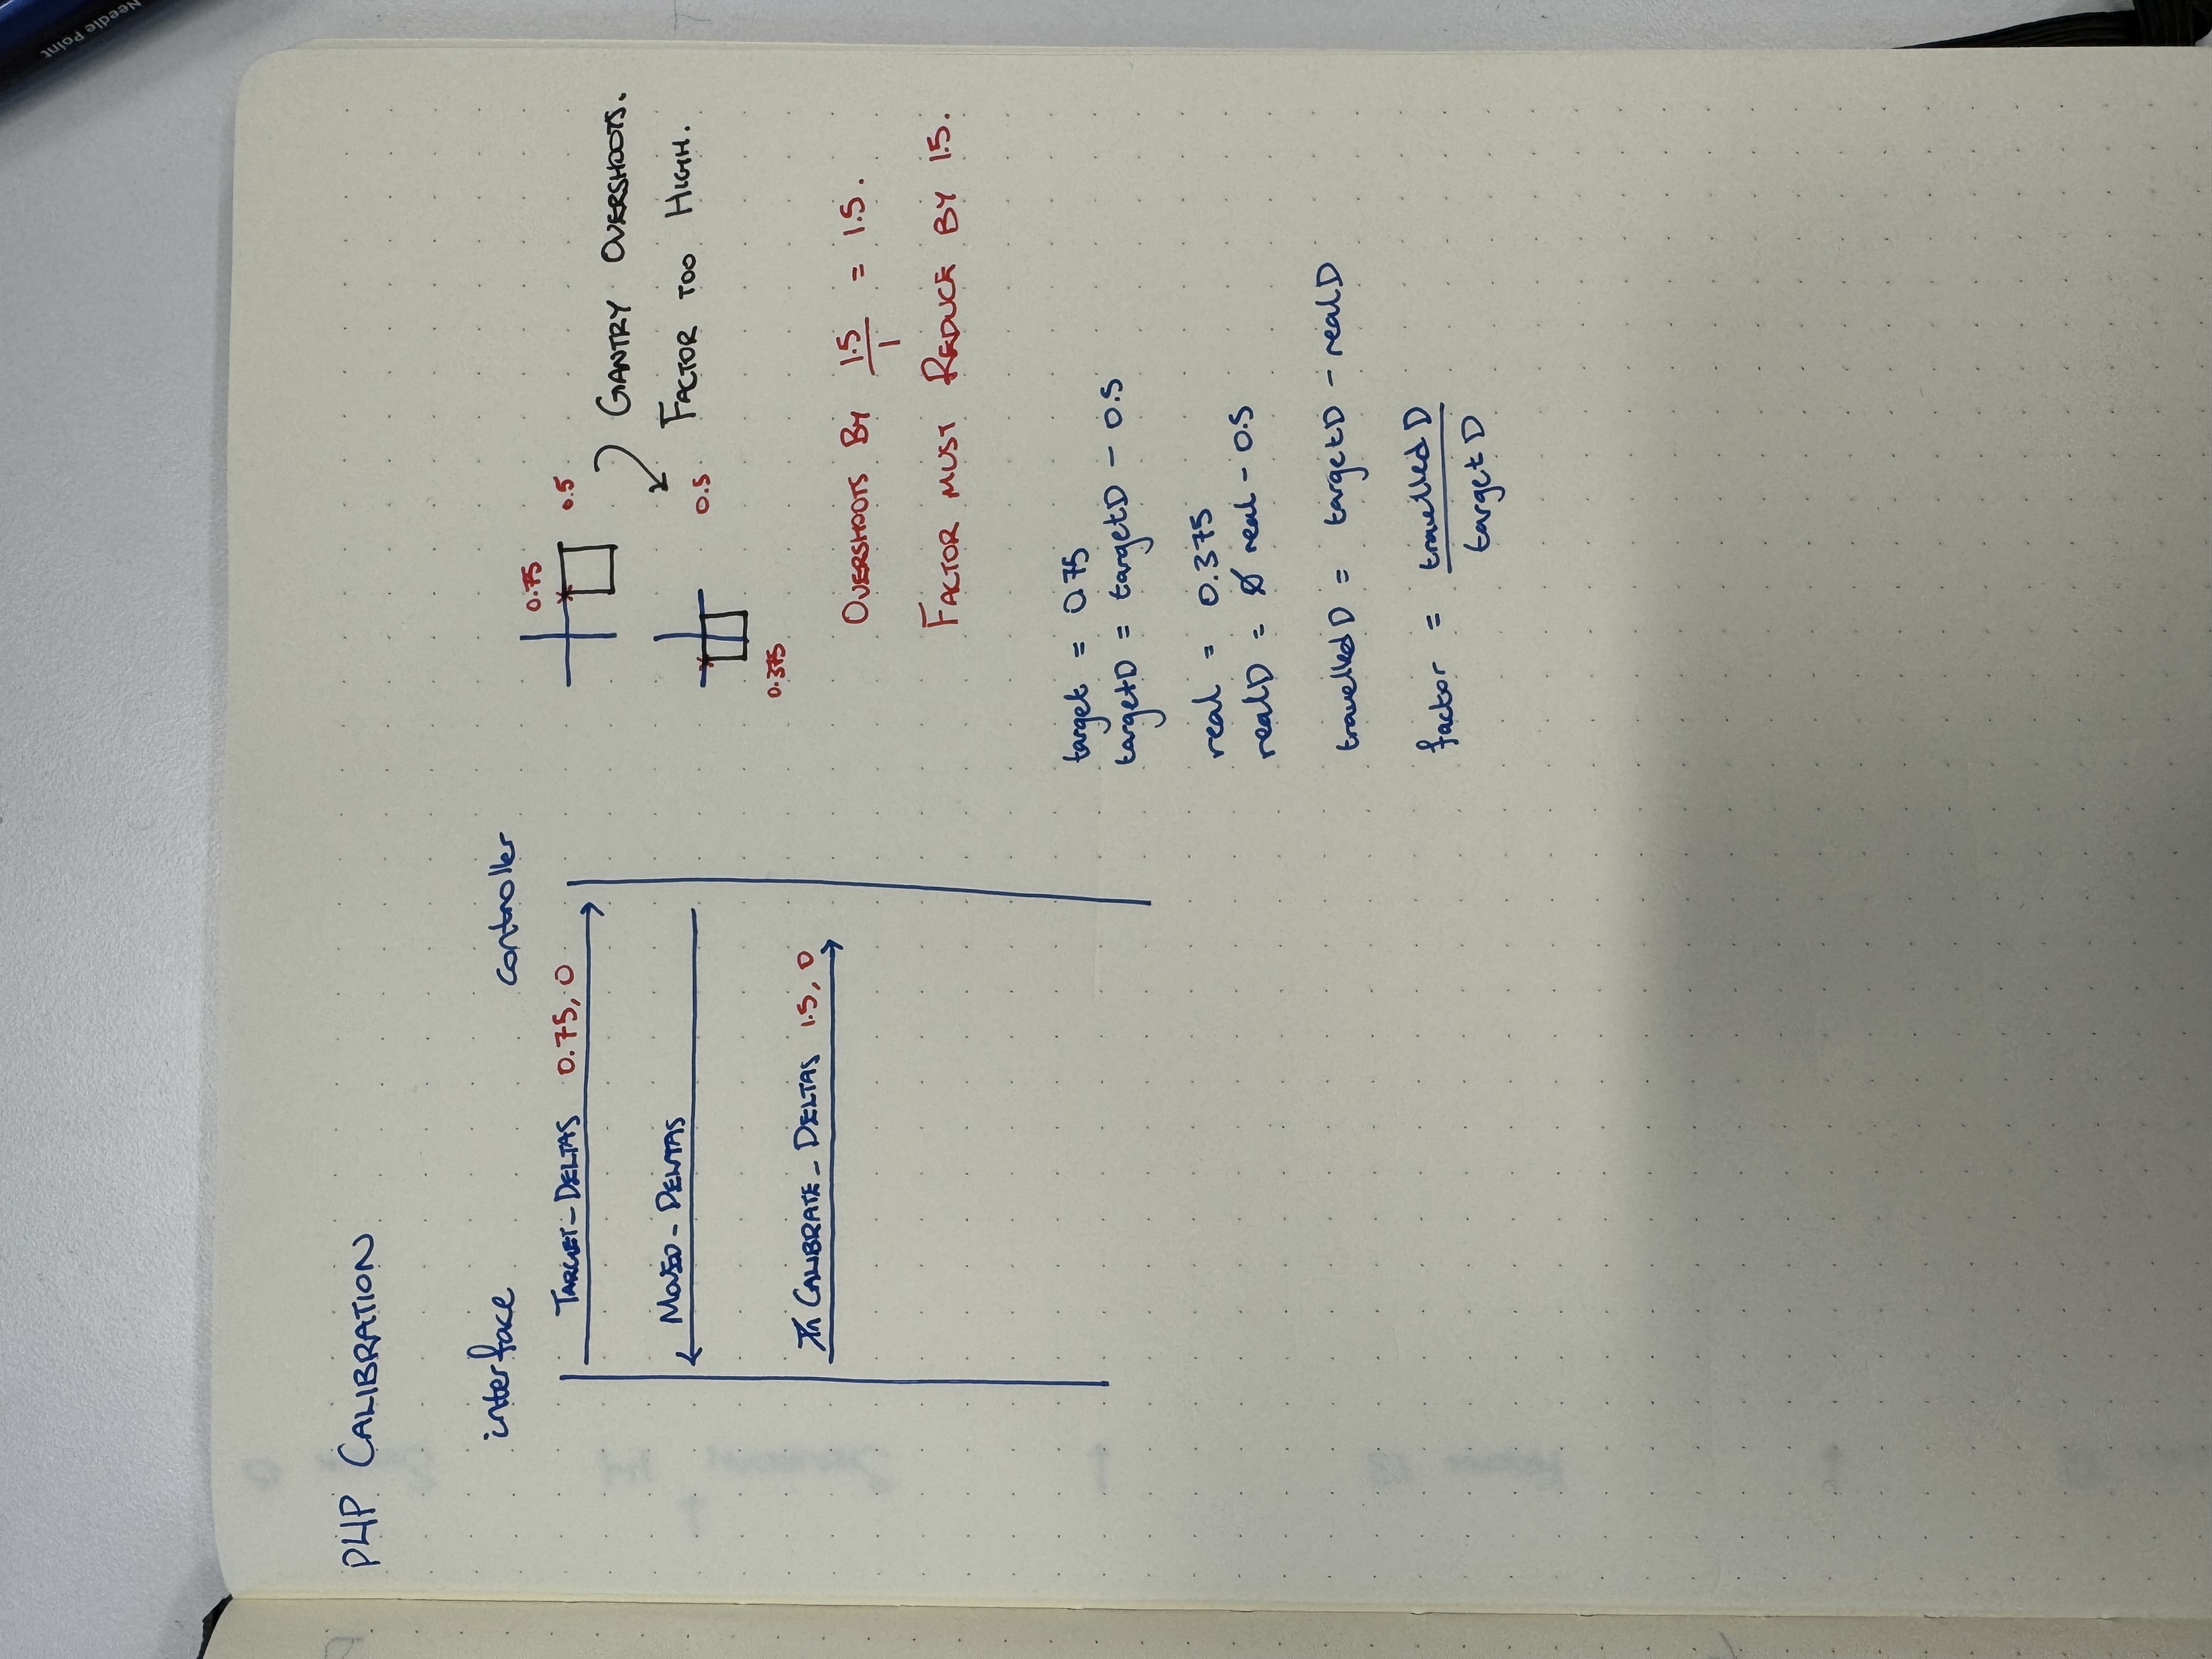 Needle Point
P4P CALIBRATION
interface
controller
TARGET_DELTAS 0.75, 0
MOVED_DELTAS
CALIBRATE_DELTAS 1.5, 0
0.75
0.5
GANTRY OVERSHOOTS.
FACTOR TOO HIGH.
0.5
0.375
OVERSHOOTS BY 1.5/1 = 1.5.
FACTOR MUST REDUCE BY 1.5.
target = 0.75
targetD = targetD - 0.5
real = 0.375
realD = real - 0.5
travelledD = targetD - realD
factor = travelledD
targetD